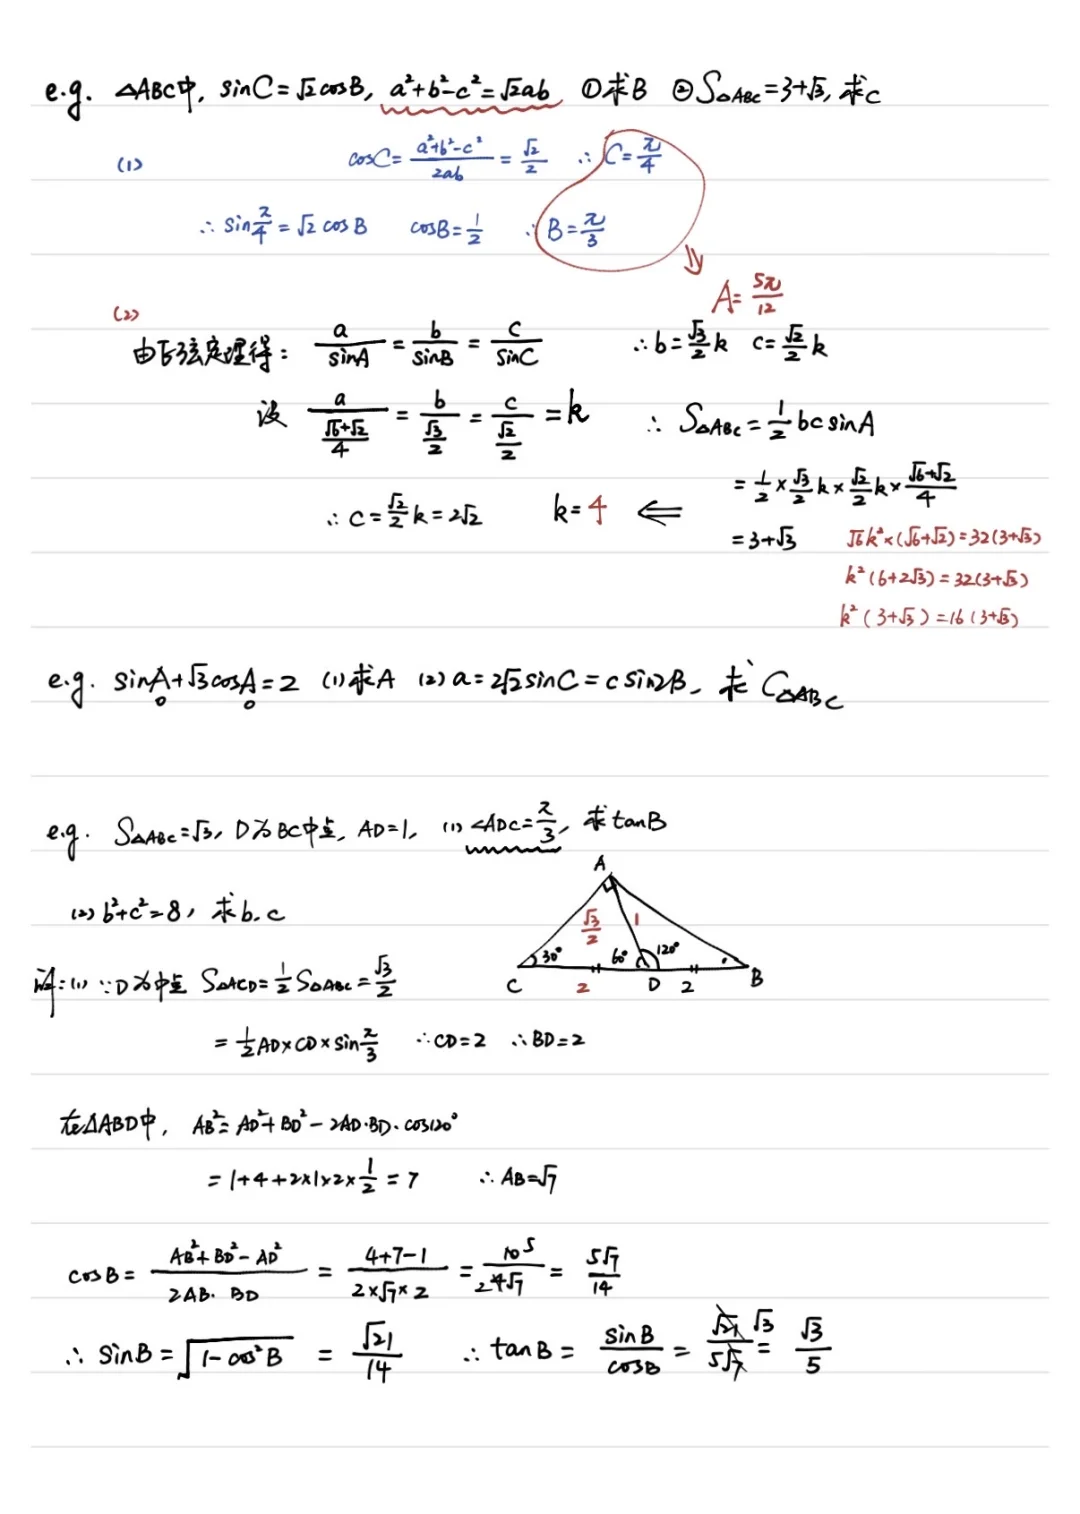 e.g. △ABC中, sinC=√2cosB, a²+b²-c²=√2ab ①求B ②S△ABC=3+√3, 求c
(1) cosC= (a²+b²-c²)/2ab = √2/2 ∴ C=π/4
∴ sin π/4 = √2 cosB cosB=1/2 ∴ B=π/3
A= 5π/12
(2)
由正弦定理得: a/sinA = b/sinB = c/sinC ∴b=√3/2 k c=√2/2 k
设 a/((√6+√2)/4) = b/(√3/2) = c/(√2/2) =k ∴ S△ABC=1/2 bcsinA
= 1/2 × √3/2 k × √2/2 k × (√6+√2)/4
∴ c=√2/2 k=2√2 k=4 ⇐ =3+√3
√6k²×(√6+√2)=32(3+√3)
k²(6+2√3)=32(3+√3)
k²(3+√3)=16(3+√3)
e.g. sinA+√3cosA=2 (1)求A (2)a=2√2sinC=csin2B, 求C△ABC
e.g. S△ABC=√3, D为BC中点, AD=1, (1)∠ADC=π/3, 求tanB
(2) b²+c²=8, 求b.c
A
√3/2 1
30° 60° 120°
C 2 D 2 B
解:(1) ∵D为中点 S△ACD=1/2 S△ABC=√3/2
= 1/2 AD×CD×sin π/3 ∴CD=2 ∴BD=2
在△ABD中, AB²=AD²+BD²-2AD·BD·cos120°
=1+4+2×1×2×1/2=7 ∴AB=√7
cosB= (AB²+BD²-AD²)/(2AB·BD) = (4+7-1)/(2×√7×2) = 10 5/2 4√7 = 5√7/14
∴ sinB=√(1-cos²B) = √21/14 ∴ tanB= sinB/cosB = √21 √3/5√7 = √3/5